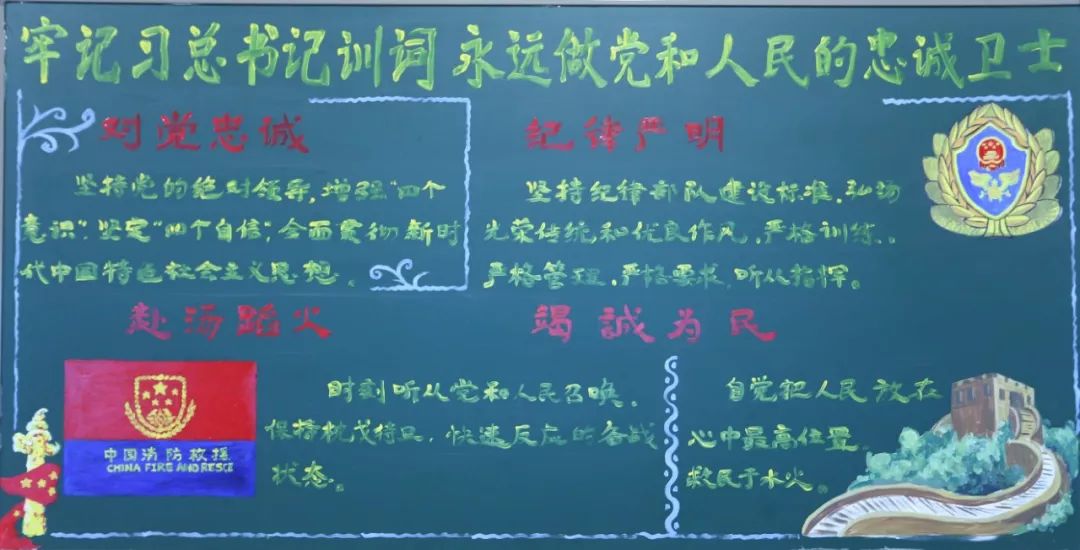 牢记习总书记训词 永远做党和人民的忠诚卫士
对党忠诚
坚持党的绝对领导，增强“四个
意识”，坚定“四个自信”，全面贯彻新时
代中国特色社会主义思想。
纪律严明
坚持纪律部队建设标准，弘扬
光荣传统和优良作风，严格训练、
严格管理，严格要求，听从指挥。
赴汤蹈火
中国消防救援
CHINA FIRE AND RESCE
时刻听从党和人民召唤，
保持枕戈待旦，快速反应的备战
状态。
竭誠为民
自觉把人民放在
心中最高位置
救民于水火。